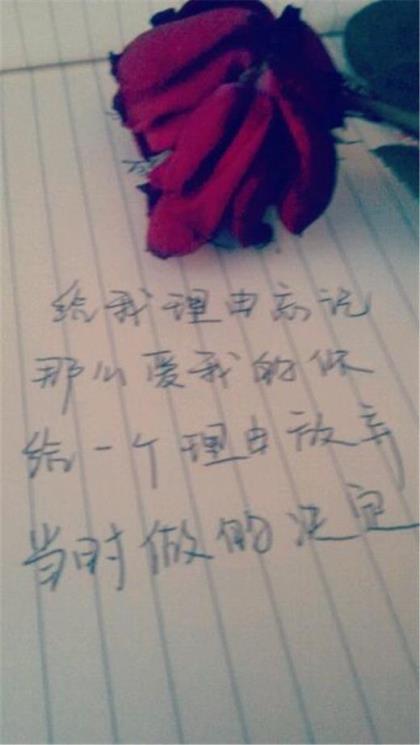 给我理由忘记
那么爱我的你
给一个理由放弃
当时做的决定